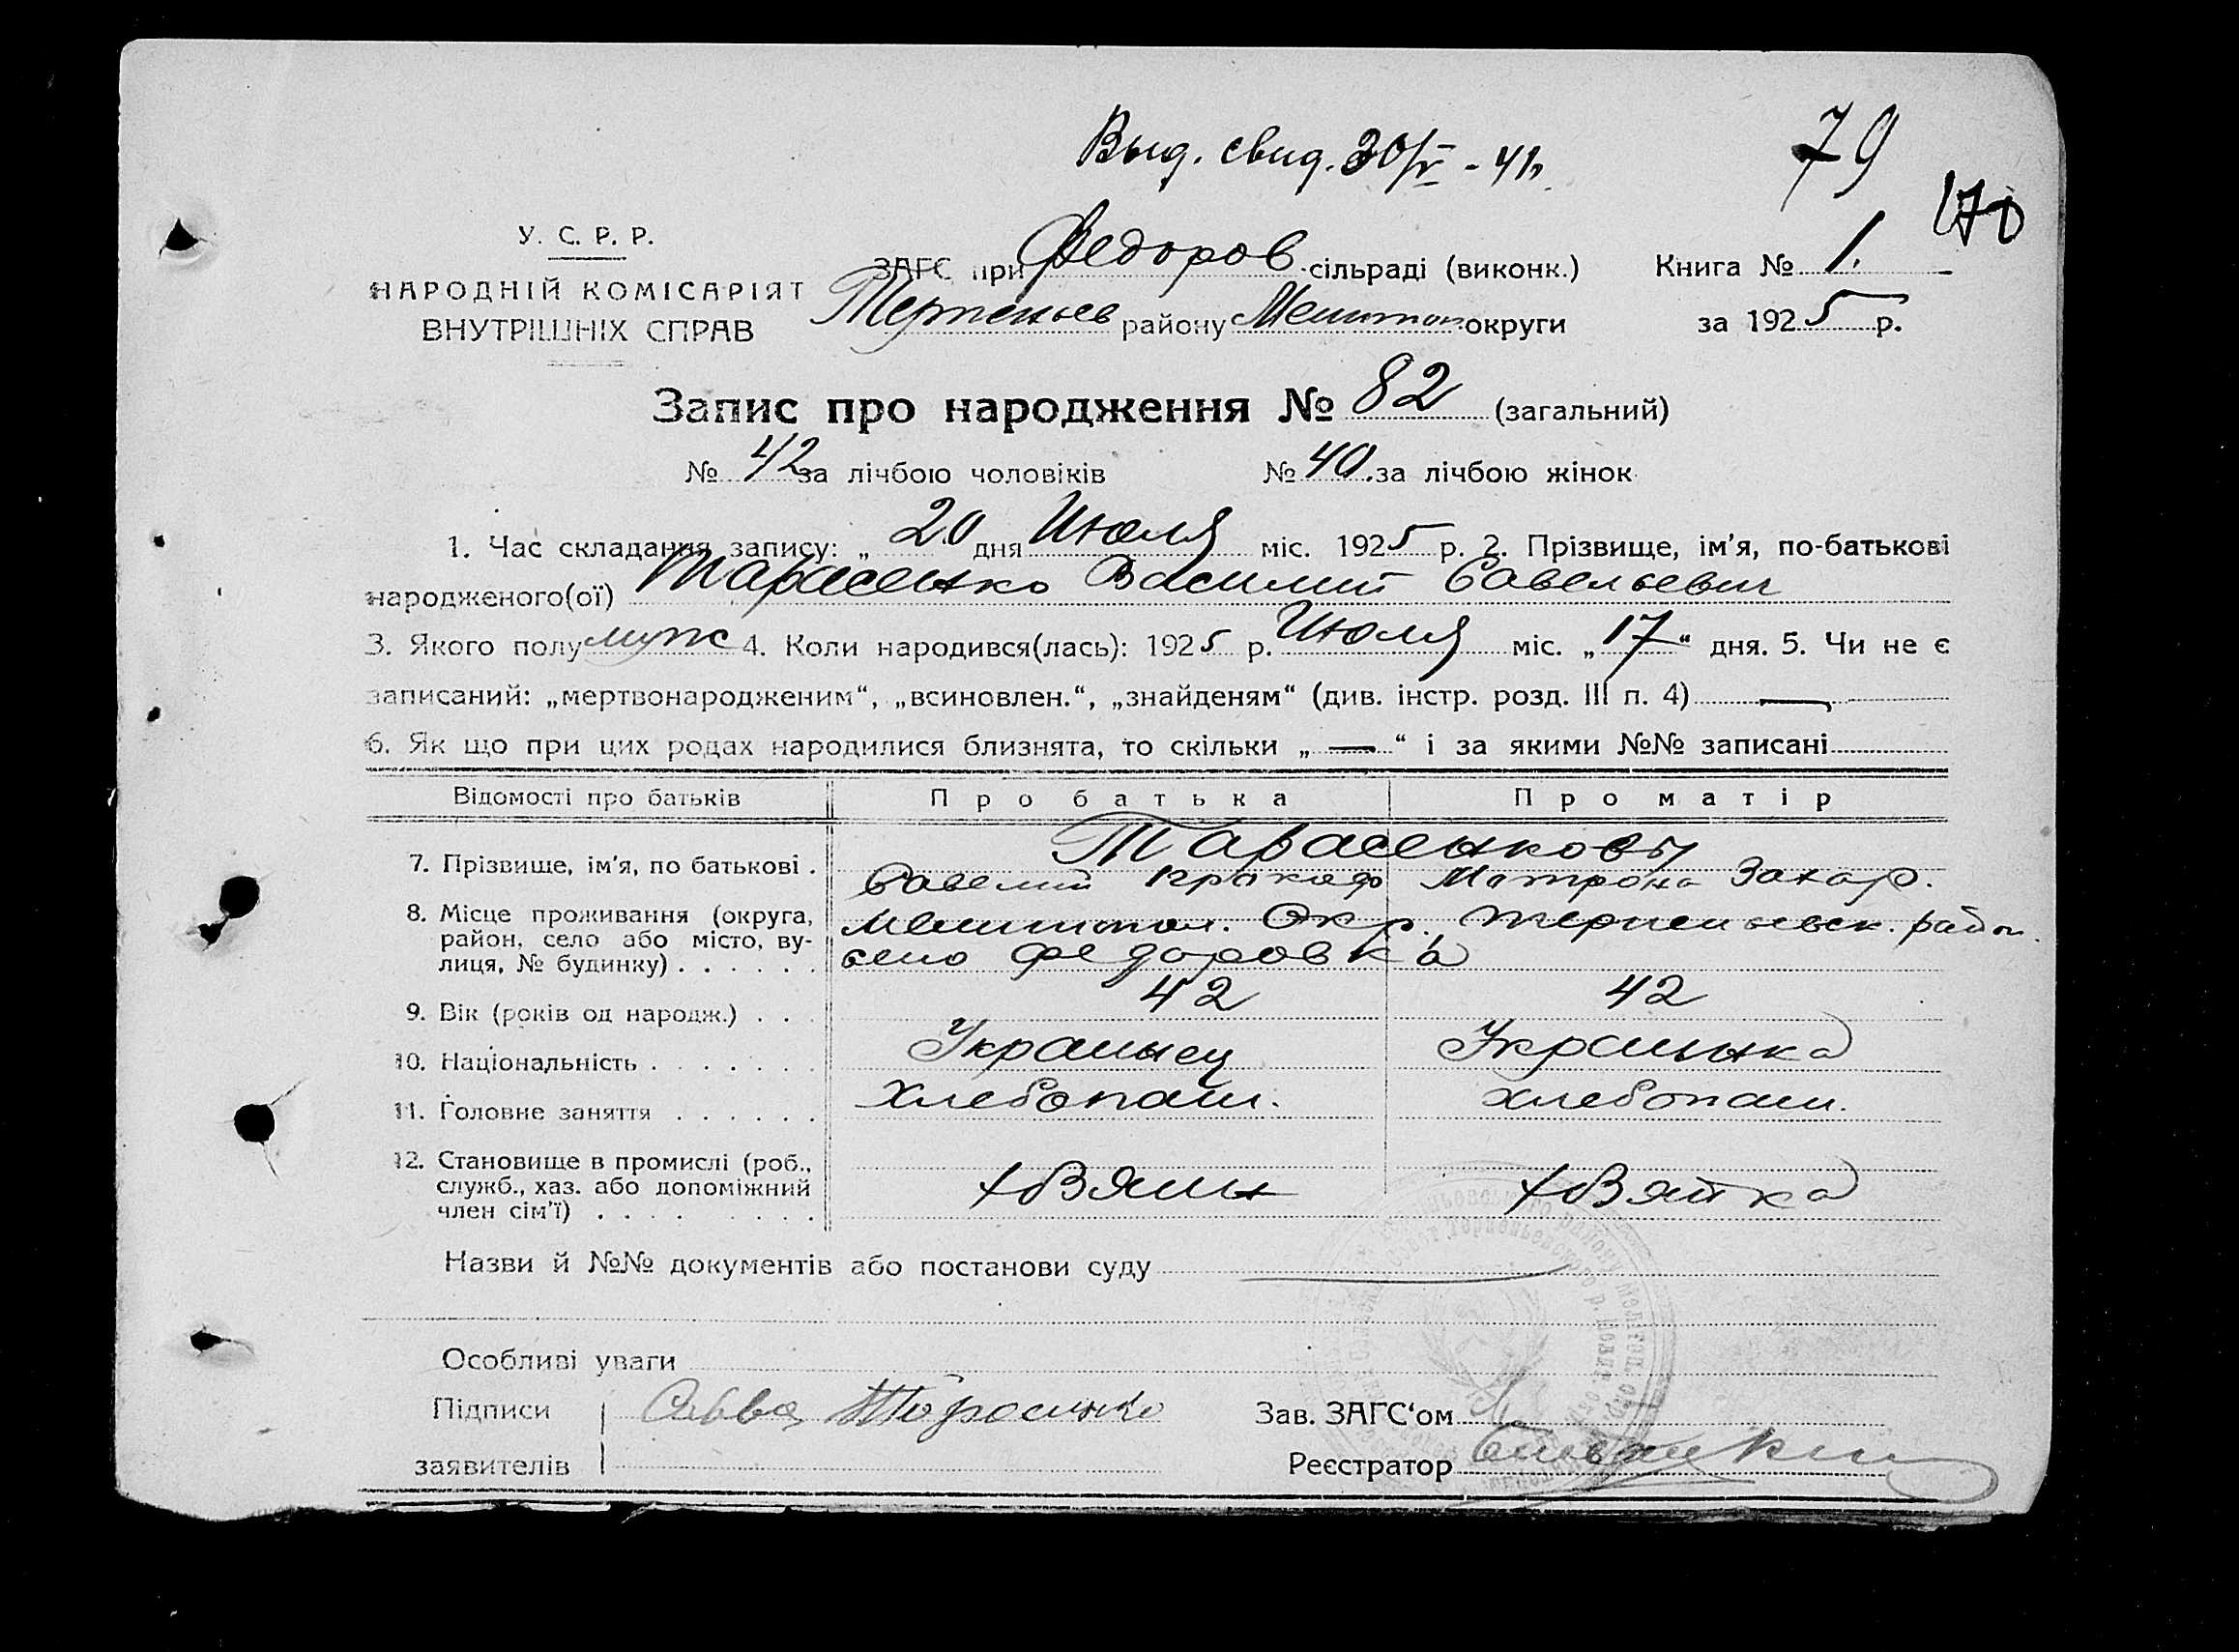 Выд. свид. 30/V - 41 г.
79
170
У. С. Р. Р.
НАРОДНІЙ КОМІСАРІЯТ
ВНУТРІШНІХ СПРАВ
ЗАГС при Федоров. сільраді (виконк.) Книга № 1.
Терпеньев району Мелитоп. округи за 1925 р.
Запис про народження № 82 (загальний)
№ 42 за лічбою чоловіків № 40 за лічбою жінок
1. Час складання запису: „ 20 дня Июля міс. 1925 р. 2. Прізвище, ім'я, по-батькові
народженого(ої) Тарасенко Василий Савельевич
3. Якого полу муж 4. Коли народився(лась): 1925 р. Июля міс. „17“ дня. 5. Чи не є
записаний: „мертвонародженим“, „всиновлен.“, „знайденям“ (див. інстр. розд. III п. 4) —
6. Як що при цих родах народилися близнята, то скільки „ — “ і за якими №№ записані
Відомості про батьків Про батька Про матір
Тарасенковы
7. Прізвище, ім'я, по батькові . Савелий Матрона Захар.
8. Місце проживання (округа, Мелитопол. Окр. Терпеньевск. район.
район, село або місто, ву- село Федоровка
лиця, № будинку) . . . . . .
9. Вік (років од народж.) . . . 42 42
10. Національність . . . . . . . Украинец Украинка
11. Головне заняття . . . . . . Хлебопаш. хлебопаш.
12. Становище в промислі (роб.,
служб., хаз. або допоміжний хвяин хвяйка
член сім'ї) . . . . . . . .
Назви й №№ документів або постанови суду —
Особливі уваги
Підписи Савва Тарасенко Зав. ЗАГС‘ом
заявителів Реєстратор